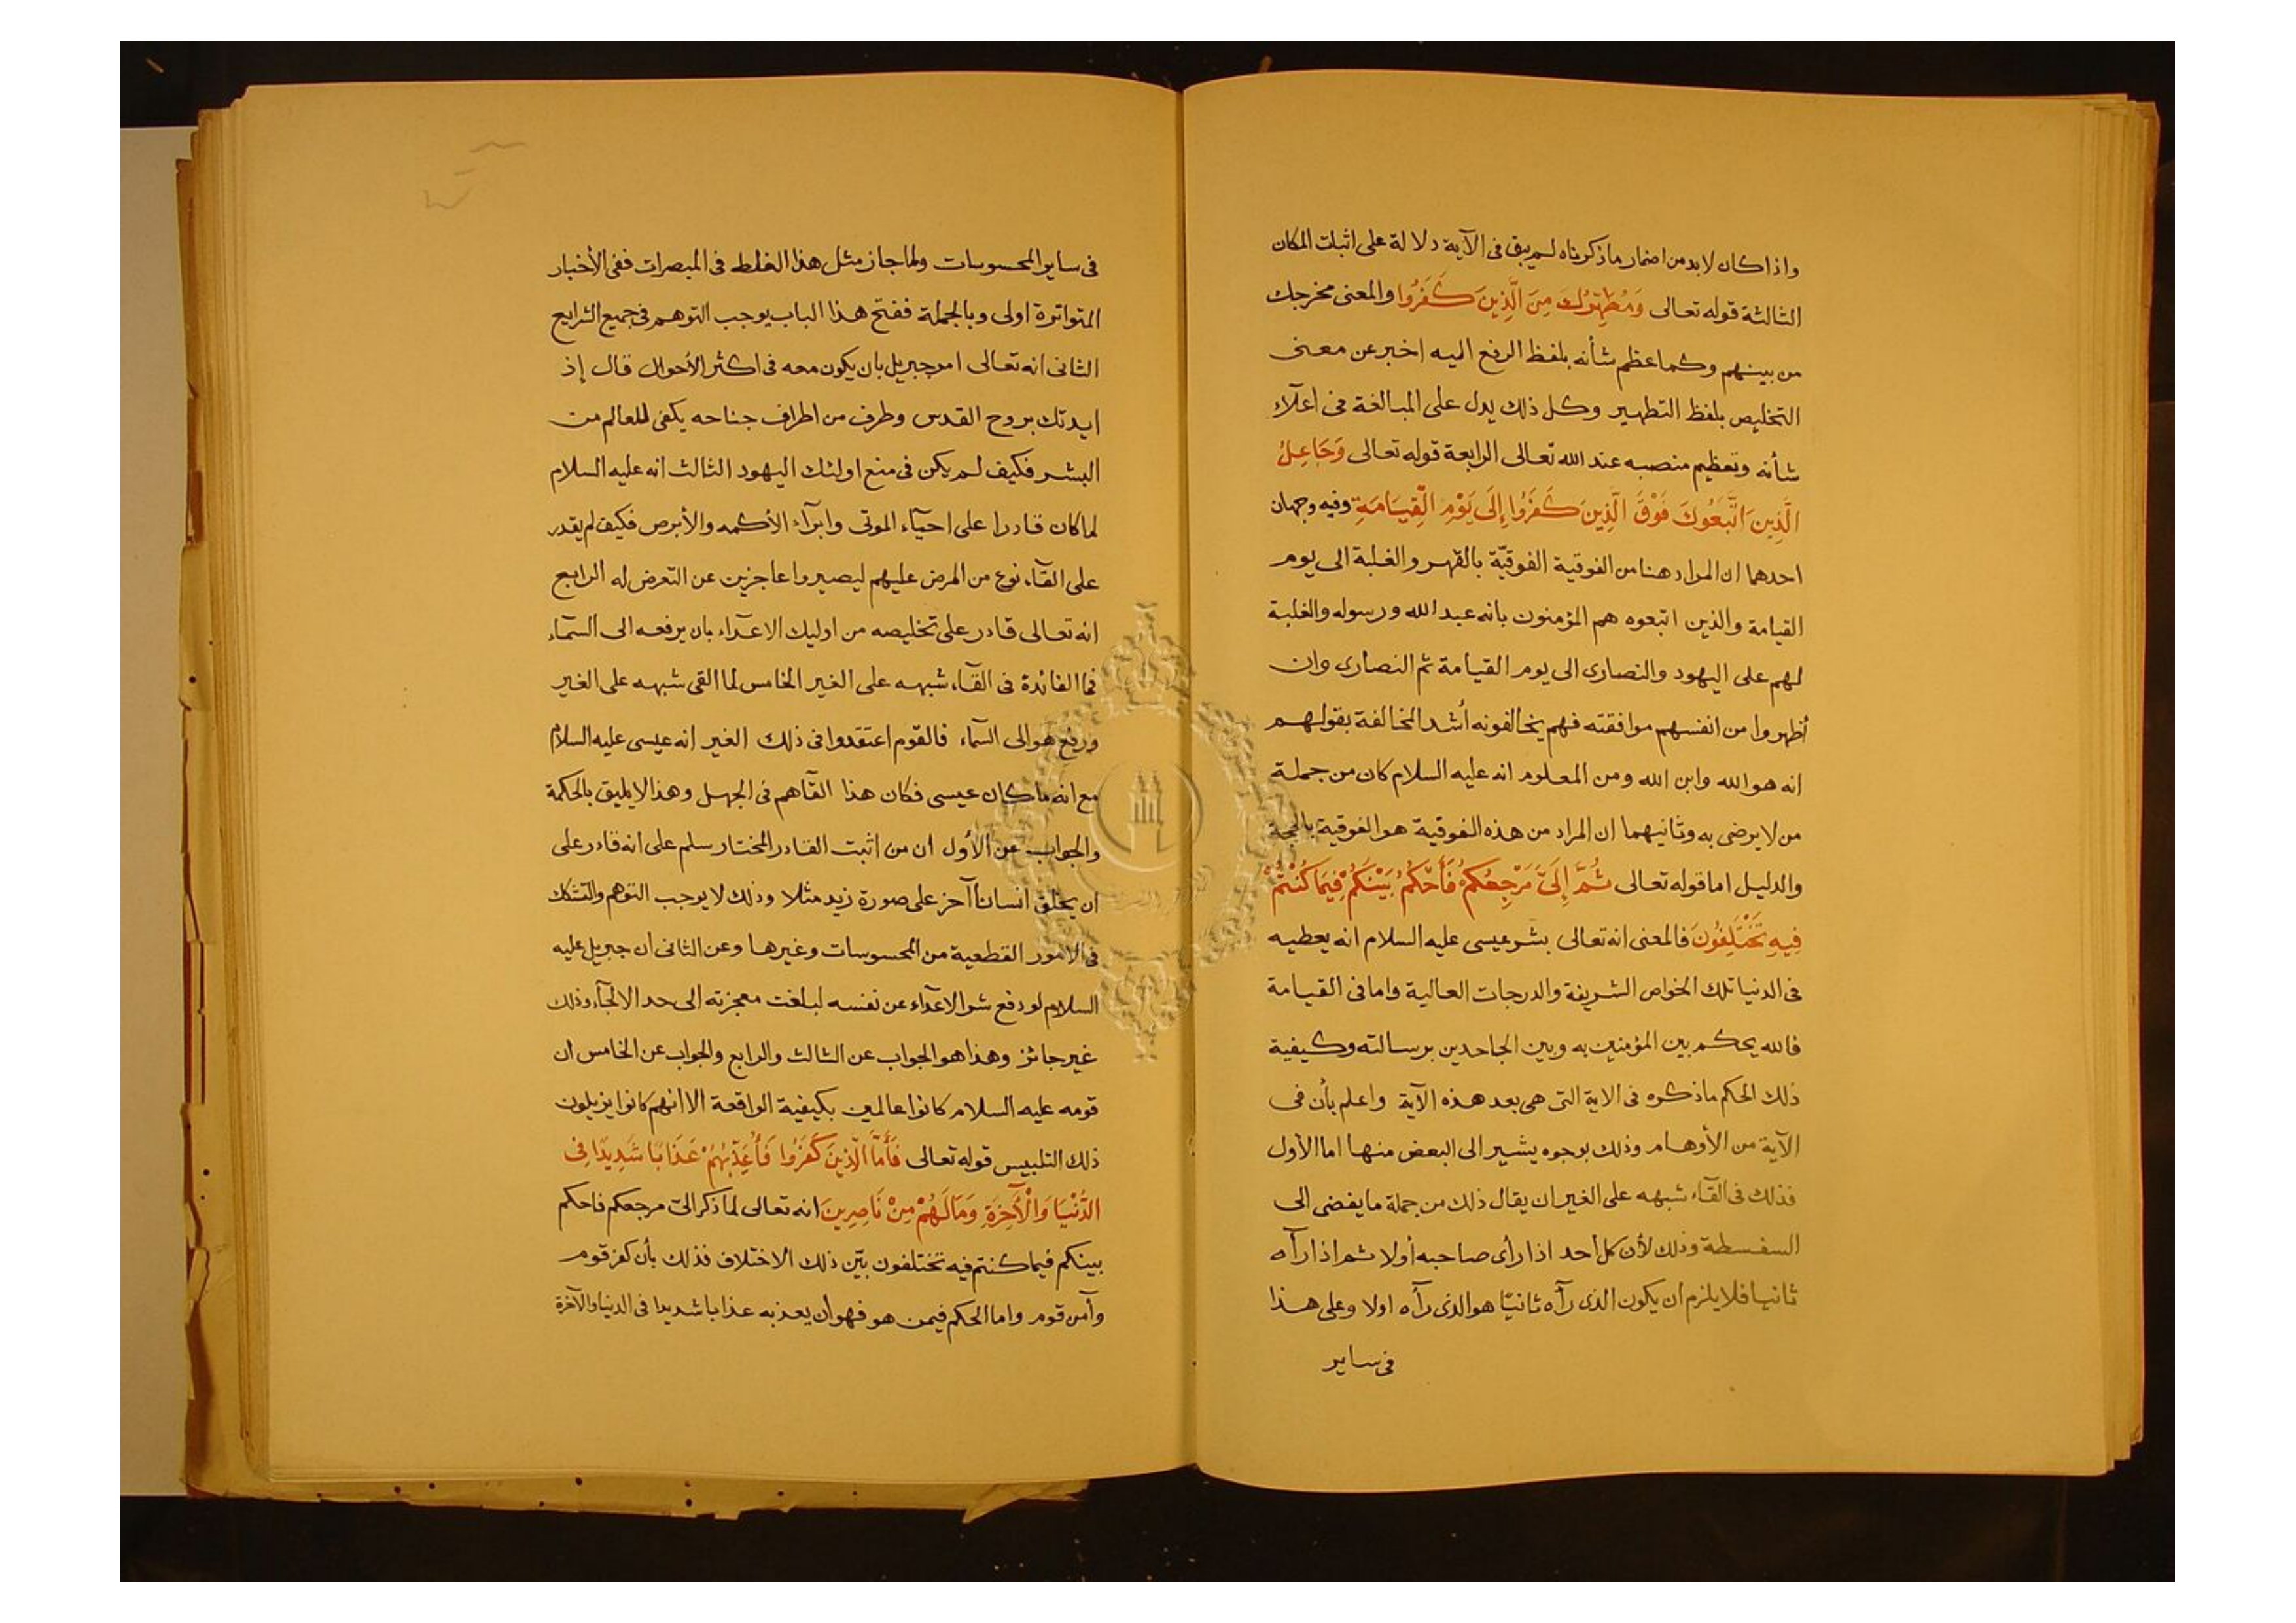 واذا كان لا بد من اضمار ما ذكرناه لم يبق فى الآية دلالة على اثبات المكان
الثالثة قوله تعالى وَمُطَهِّرُكَ مِنَ الَّذِينَ كَفَرُوا والمعنى مخرجك
من بينهم وكما عظم شأنه بلفظ الرفع اليه اخبر عن معنى
التخليص بلفظ التطهير وكل ذلك يدل على المبالغة فى اعلآء
شأنه وتعظيم منصبه عند الله تعالى الرابعة قوله تعالى وَجَاعِلُ
الَّذِينَ اتَّبَعُوكَ فَوْقَ الَّذِينَ كَفَرُوا إِلَى يَوْمِ الْقِيَامَةِ وفيه وجهان
احدهما ان المراد هنا من الفوقية الفوقيّة بالقهر والغلبة الى يوم
القيامة والذين اتبعوه هم المؤمنون بانه عبد الله ورسوله والغلبة
لهم على اليهود والنصارى الى يوم القيامة ثم النصارى وان
أظهروا من انفسهم موافقته فهم يخالفونه أشد المخالفة بقولهم
انه هو الله وابن الله ومن المعلوم انه عليه السلام كان من جملة
من لا يرضى به وثانيهما ان المراد من هذه الفوقية هو الفوقية بالحجة
والدليل اما قوله تعالى ثُمَّ إِلَىَّ مَرْجِعُكُمْ فَأَحْكُمُ بَيْنَكُمْ فِيمَا كُنْتُمْ
فِيهِ تَخْتَلِفُونَ فالمعنى انه تعالى بشر عيسى عليه السلام انه يعطيه
فى الدنيا تلك الخواص الشريفة والدرجات العالية واما فى القيامة
فالله يحكم بين المؤمنين به وبين الجاحدين برسالته وكيفية
ذلك الحكم ما ذكره فى الاية التى هى بعد هذه الآية واعلم بأن فى
الآية من الأوهام وذلك بوجوه يشير الى البعض منها اما الأول
فذلك فى القآء شبهه على الغير ان يقال ذلك من جملة ما يفضى الى
السفسطة وذلك لأن كل احد اذا رأى صاحبه أولا ثم اذا رآه
ثانيا فلا يلزم ان يكون الذى رآه ثانيًا هو الذى رآه اولا وعلى هذا
فى ساير
فى ساير المحسوسات ولما جاز مثل هذا الغلط فى المبصرات ففى الأخبار
المتواترة اولى وبالجملة ففتح هذا الباب يوجب التوهم فى جميع الشرايع
الثانى انه تعالى امر جبريل بان يكون معه فى اكثر الأحوال قال إذ
ايدتك بروح القدس وطرف من اطراف جناحه يكفى للعالم من
البشر فكيف لم يكن فى منع اولئك اليهود الثالث انه عليه السلام
لما كان قادرا على احيآء الموتى وابرآء الأكمه والأبرص فكيف لم يقدر
على القآء نوع من المرض عليهم ليصيروا عاجزين عن التعرض له الرابع
انه تعالى قادر على تخليصه من اوليك الاعدآء بان يرفعه الى السمآء
فما الفائدة فى القآء شبهه على الغير الخامس لما القى شبهه على الغير
ورفع هو الى السمآء فالقوم اعتقدوا فى ذلك الغير انه عيسى عليه السلام
مع انه ما كان عيسى فكان هذا القآهم فى الجهل وهذا لا يليق بالحكمة
والجواب عن الأول ان من اثبت القادر المختار سلم على انه قادر على
ان يخلق انسانا آخر على صورة زيد مثلا وذلك لا يوجب التوهم والتشكك
فى الامور القطعية من المحسوسات وغيرها وعن الثانى ان جبريل عليه
السلام لو دفع شر الاعدآء عن نفسه لبلغت معجزته الى حد الالجآء وذلك
غير جائز وهذا هو الجواب عن الثالث والرابع والجواب عن الخامس ان
قومه عليه السلام كانوا عالمين بكيفية الواقعة الا انهم كانوا يزيلون
ذلك التلبيس قوله تعالى فَأَمَّا الَّذِينَ كَفَرُوا فَأُعَذِّبُهُمْ عَذَابًا شَدِيدًا فِى
الدُّنْيَا وَالْآخِرَةِ وَمَا لَهُمْ مِنْ نَاصِرِينَ انه تعالى لما ذكر الىّ مرجعكم فاحكم
بينكم فيما كنتم فيه تختلفون بيّن ذلك الاختلاف فذلك بأن كفر قوم
وآمن قوم واما الحكم فيمن هو فهو أن يعذبه عذابا شديدا فى الدنيا والآخرة